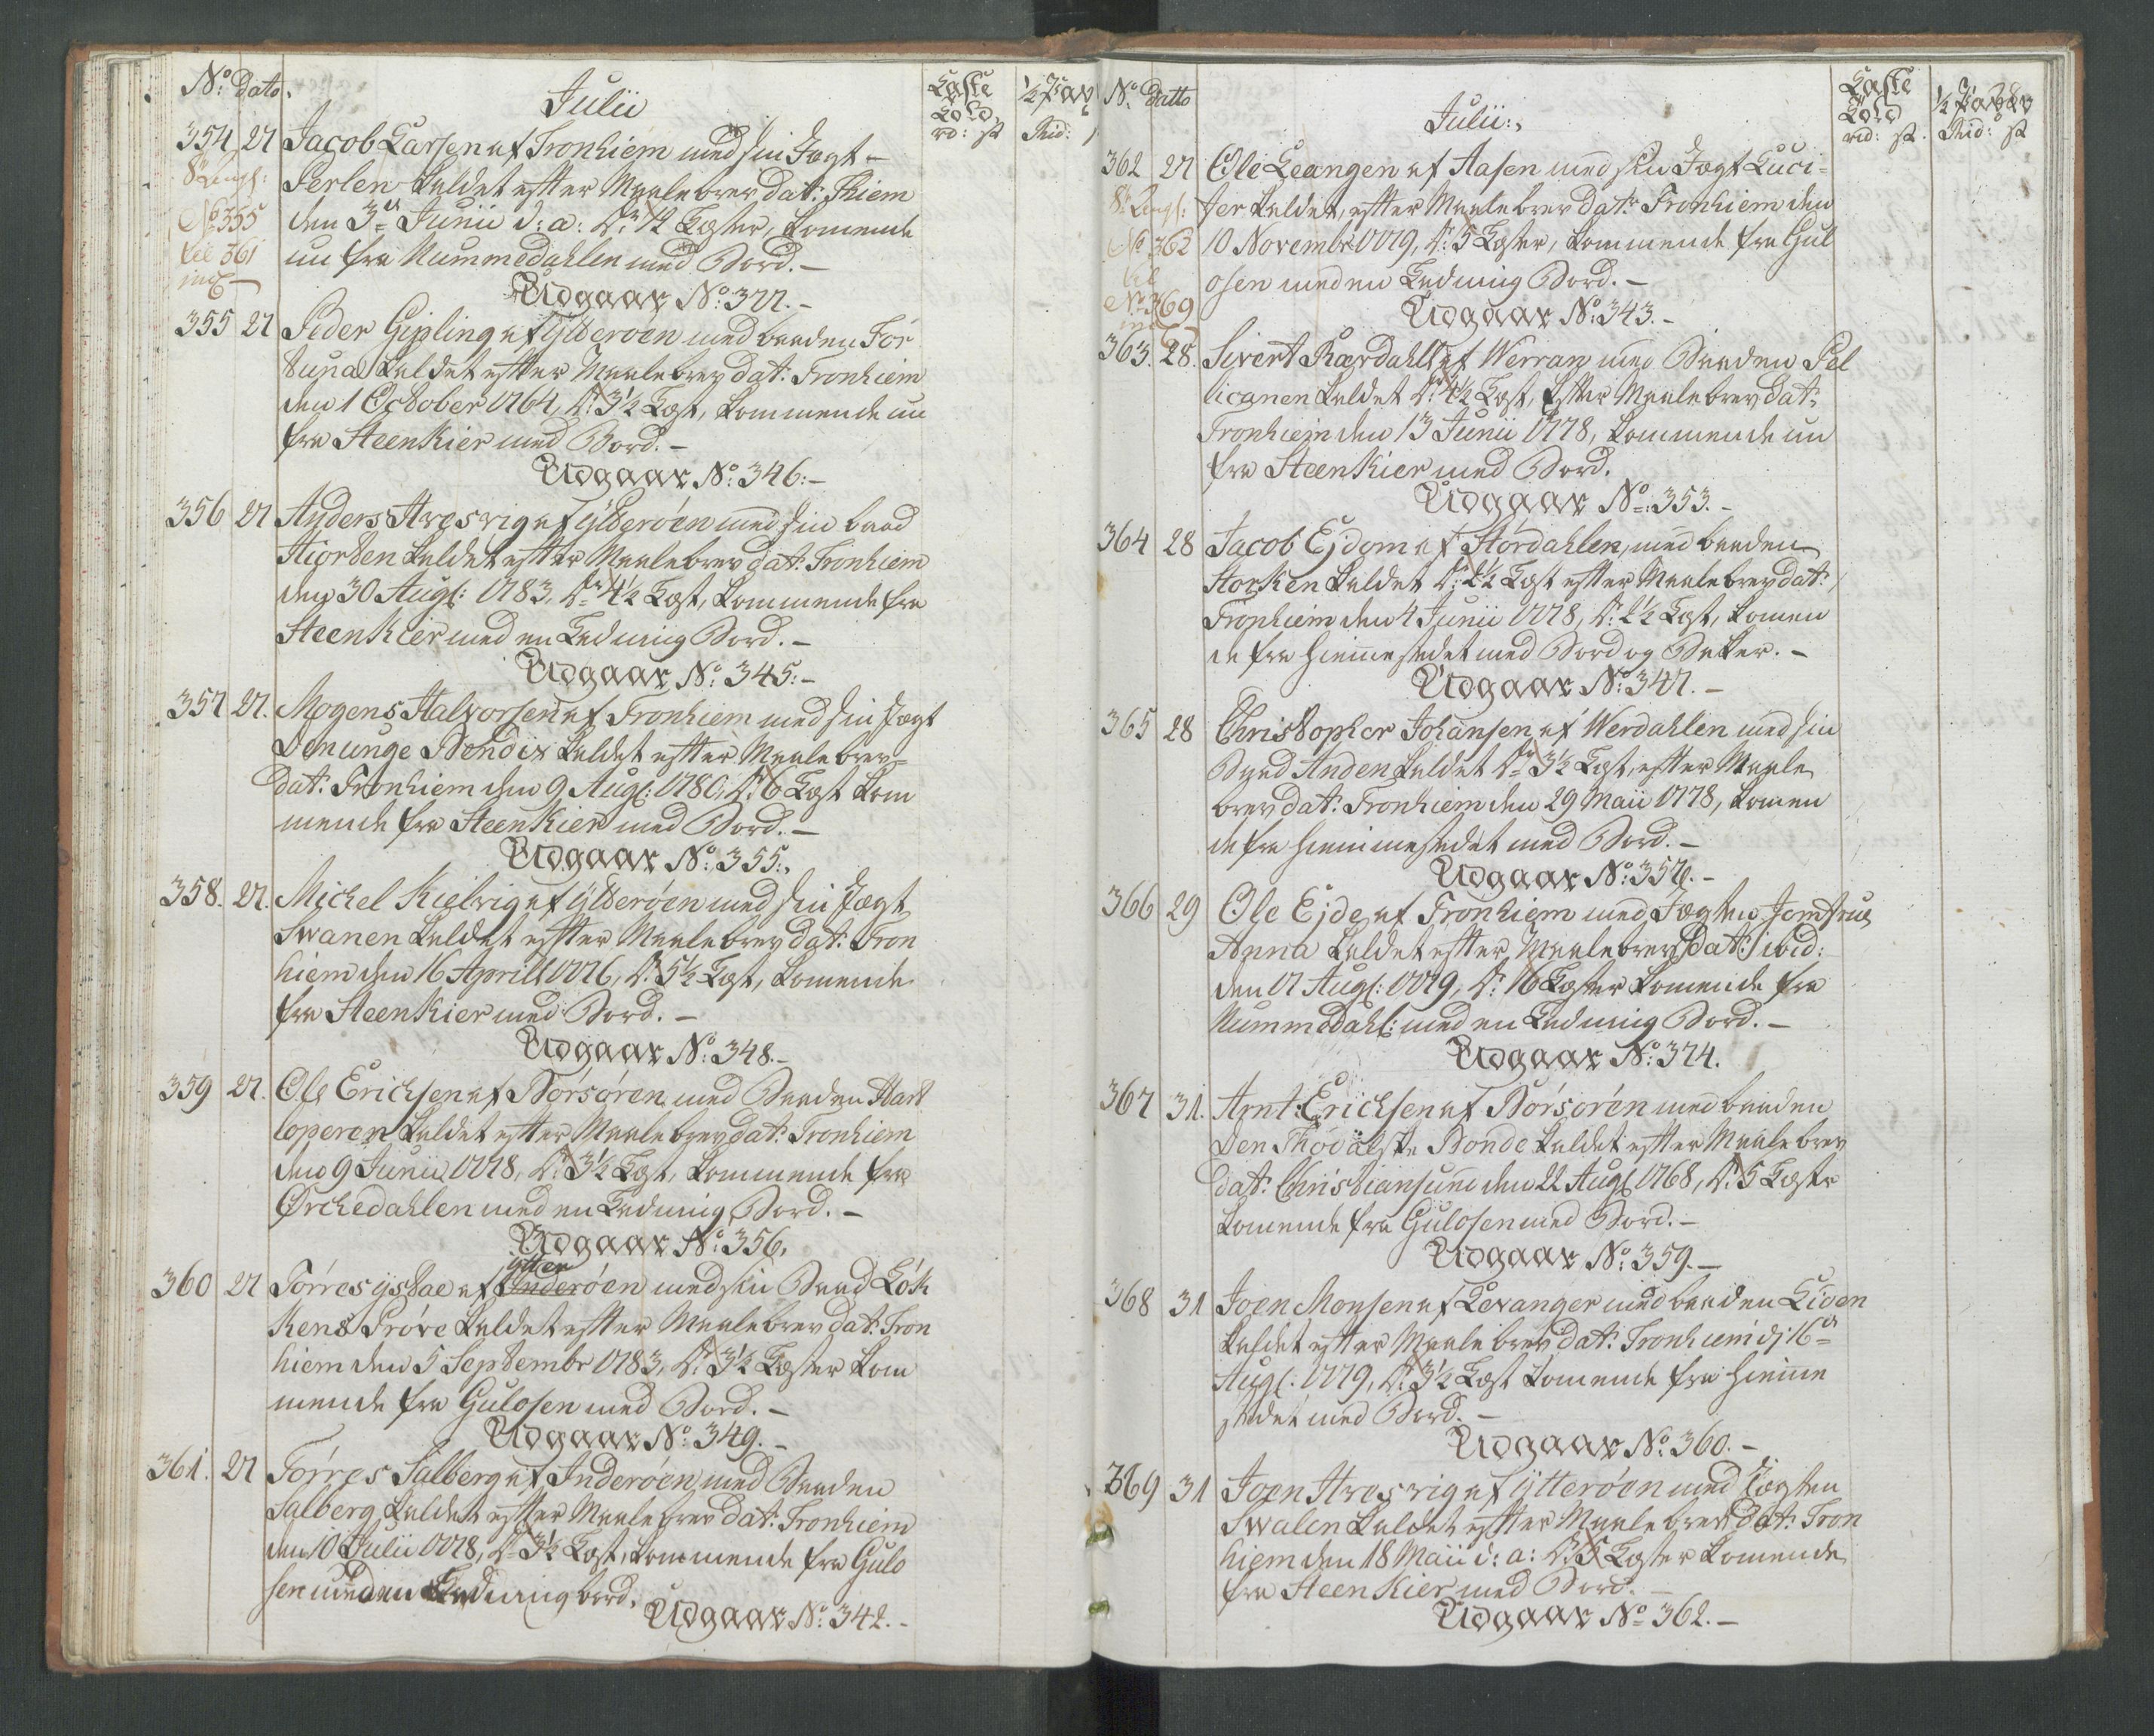 No: dato.
Julii
Læste Told rd: sk
½ p Ct av Rid:
354 27 Jacob Larsen af Tronhiem med sin Jægt -
Perlen kaldet efter Maalebrev dat: Thiem
No 355
den 3de Junii d: a: Dr: 12 Læster, komende
til 361
nu fra Nummedahlen med Bord. -
incl
Udgaar No: 377. -
355 27 Peder Gipling af Ytterøen med baaden For
tuna kaldet efter Maalebrev dat: Tronhiem
den 1 October 1764, Dr: 3½ Læst, kommende nu
fra Steenkier med Bord. -
Udgaar No: 346: -
356 27 Anders Hresvig af Ytterøen med sin baad
Hiorten kaldet efter Maalebrev dat: Tronhiem
den 30 Augs: 1783, Dr: 4½ Læst, kommende fra
Steenkier med en Ladning Bord. -
Udgaar No: 345: -
357 27. Mogens Halvorsen af Tronhiem med sin Jægt
Den unge Bendix kaldet efter Maalebrev
dat: Tronhiem den 9 Augs: 1780, Dr: 6 Læst kom
mende fra Steenkier med Bord. -
Udgaar No: 355:,
358. 27. Michel Kielvig af Ytterøen med sin Jægt
Swanen kaldet efter Maalebrev dat: Tron
hiem den 16 Aprill 1776, Dr: 5½ Læst, komende
fra Steenkier med Bord. -
Udgaar No: 348. -
359 27. Ole Erichsen af Børsøren med Baaden Hart
loperen kaldet efter Maalebrev dat: Tronhiem
den 9 Junii 1778, Dr: 3½ Læst, kommende fra
Ørchedahlen med en Ladning Bord. -
Udgaar No: 356,
ytter
360 27 Torres ystae af Inderøen med sin Baad Løk
kens Prøve kaldet efter Maalebrev dat: Tron
hiem den 5 Septembr 1783, Dr: 3½ Læster kom
mende fra Gulosen med Bord. -
Udgaar No: 349. -
361. 27 Torres Salberg af Inderøen med Baaden
Salberg kaldet efter Maalebrev dat: Tronhiem
den 10 Julii 1778, Dr: 3½ Læst, kommende fra Gulo
sen med en Ladning bord.
Udgaar No: 342. -
No: datto
Julii:,
Læste Told rd: sk.
Rid: sk
362 27 Ole Leangen af Aasen med sin Jægt Luci-
fer kaldet, efter Maalebrev dat: Tronhiem den
No 362
10 Novembr 1779, Dr: 5 Læster, kommende fra Gul
til
osen med en Ladning Bord. -
No 369
Udgaar No: 343. -
363. 28. Sivert Rærdahl af Werran med Baaden Pel
licanen kaldet Dr: 4½ Læst, efter Maalebrev dat:
Tronhiem den 13 Junii 1778, kommende nu
fra Steenkier med Bord.
Udgaar No: 353. -
364 28 Jacob Ejdom af Størdahlen, med baaden
Storken kaldet Dr: 2½ Læst efter Maalebrev dat:
Tronhiem den 4 Junii 1778, Dr: 2½ Læst, komen
de fra hiemmestedet med Bord og Raker. -
Udgaar No: 347. -
365 28 Christopher Johansen af Werdahlen med sin
Baad Anden kaldet Dr: 3½ Læst, efter Maale
brev dat: Tronhiem den 29 Maii 1778, komen
de fra hiemmestedet med Bord. -
Udgaar No: 357. -
366 29 Ole Ejde af Tronhiem med Jægten Jomfrue
Anna kaldet efter Maalebrev dat: ibid:
den 17 Augs: 1779, Dr: 16 Læster komende fra
Nummedahl: med en Ladning Bord. -
Udgaar No: 374.
367 31. Arnt: Erichsen af Børsøren med baaden
Den Thodalske Bonde kaldet efter Maalebrev
dat: Christiansund den 22 Augs 1768, Dr: 5 Læstr
komende fra Gulosen med Bord. -
Udgaar No: 359. -
368 31 Joen Monsen af Levanger med baaden Liden
kaldet efter Maalebrev dat: Tronhiem d: 16de
Augs: 1779, Dr: 3½ Læst komende fra hiemme
stedet med Bord. -
Udgaar No: 360. -
369 31 Joen Hresvig af Ytterøen med Jægten
Swalen kaldet efter Maalebrev dat: Tron
hiem den 18 Maii d: a: Dr: 5 Læster komende
fra Steenkier med Bord. -
Udgaar No: 362. -